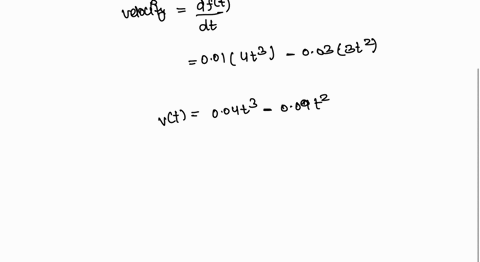 velocity = df(t)/dt
= 0.01(4t³) - 0.03(3t²)
v(t) = 0.04t³ - 0.09t²